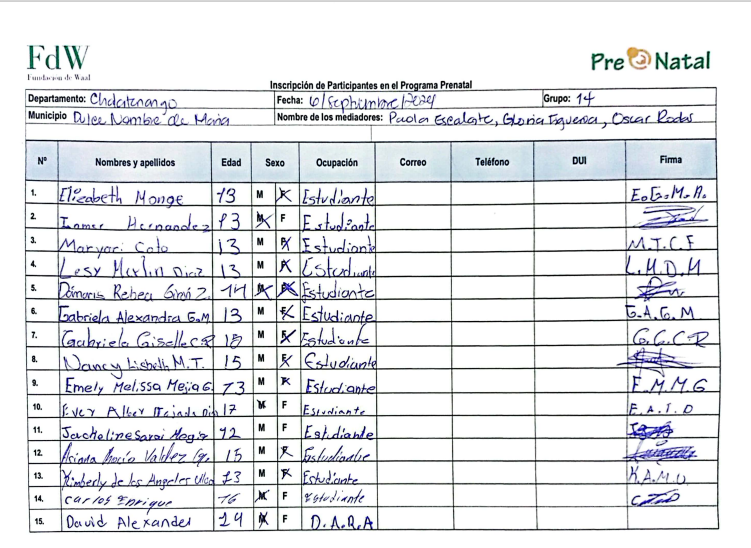 FdW
Fundación de Waal
Pre Natal
Inscripción de Participantes en el Programa Prenatal
Departamento: Chalatenango Fecha: 6/Septiembre/2024 Grupo: 14
Municipio Dulce Nombre de Maria Nombre de los mediadores: Paola Escalante, Gloria Figueroa, Oscar Rodas
Nº Nombres y apellidos Edad Sexo Ocupación Correo Teléfono DUI Firma
1. Elizabeth Monge 13 M F Estudiante E.G.M.R.
2. Hernandez 13 M F Estudiante
3. Maryori Coto 13 M F Estudiante M.T.C.F
4. Lesy Merlin Diaz 13 M F Estudiante L.M.D.M
5. Damaris Rebeca Z. 14 M F Estudiante
6. Gabriela Alexandra G.M 13 M F Estudiante G.A.G.M
7. Gabriela Giselle C.R 18 M F Estudiante G.G.C.R
8. Nancy Lisbeth M.T. 15 M F Estudiante
9. Emely Melissa Mejia G. 13 M F Estudiante E.M.M.G
10. Ever Alber 17 M F Estudiante E.A.T.D
11. Jackeline Sarai 12 M F Estudiante
12. Ariana Rocio Valdez 15 M F Estudiante
13. Kimberly de los Angeles 13 M F Estudiante K.A.M.U
14. Carlos Enrique 16 M F Estudiante
15. David Alexander 14 M F D.A.R.A